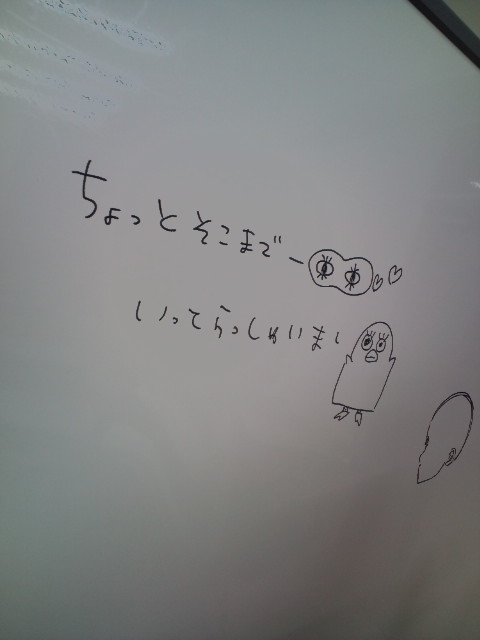 ちょっとそこまでー
いってらっしゃいまし